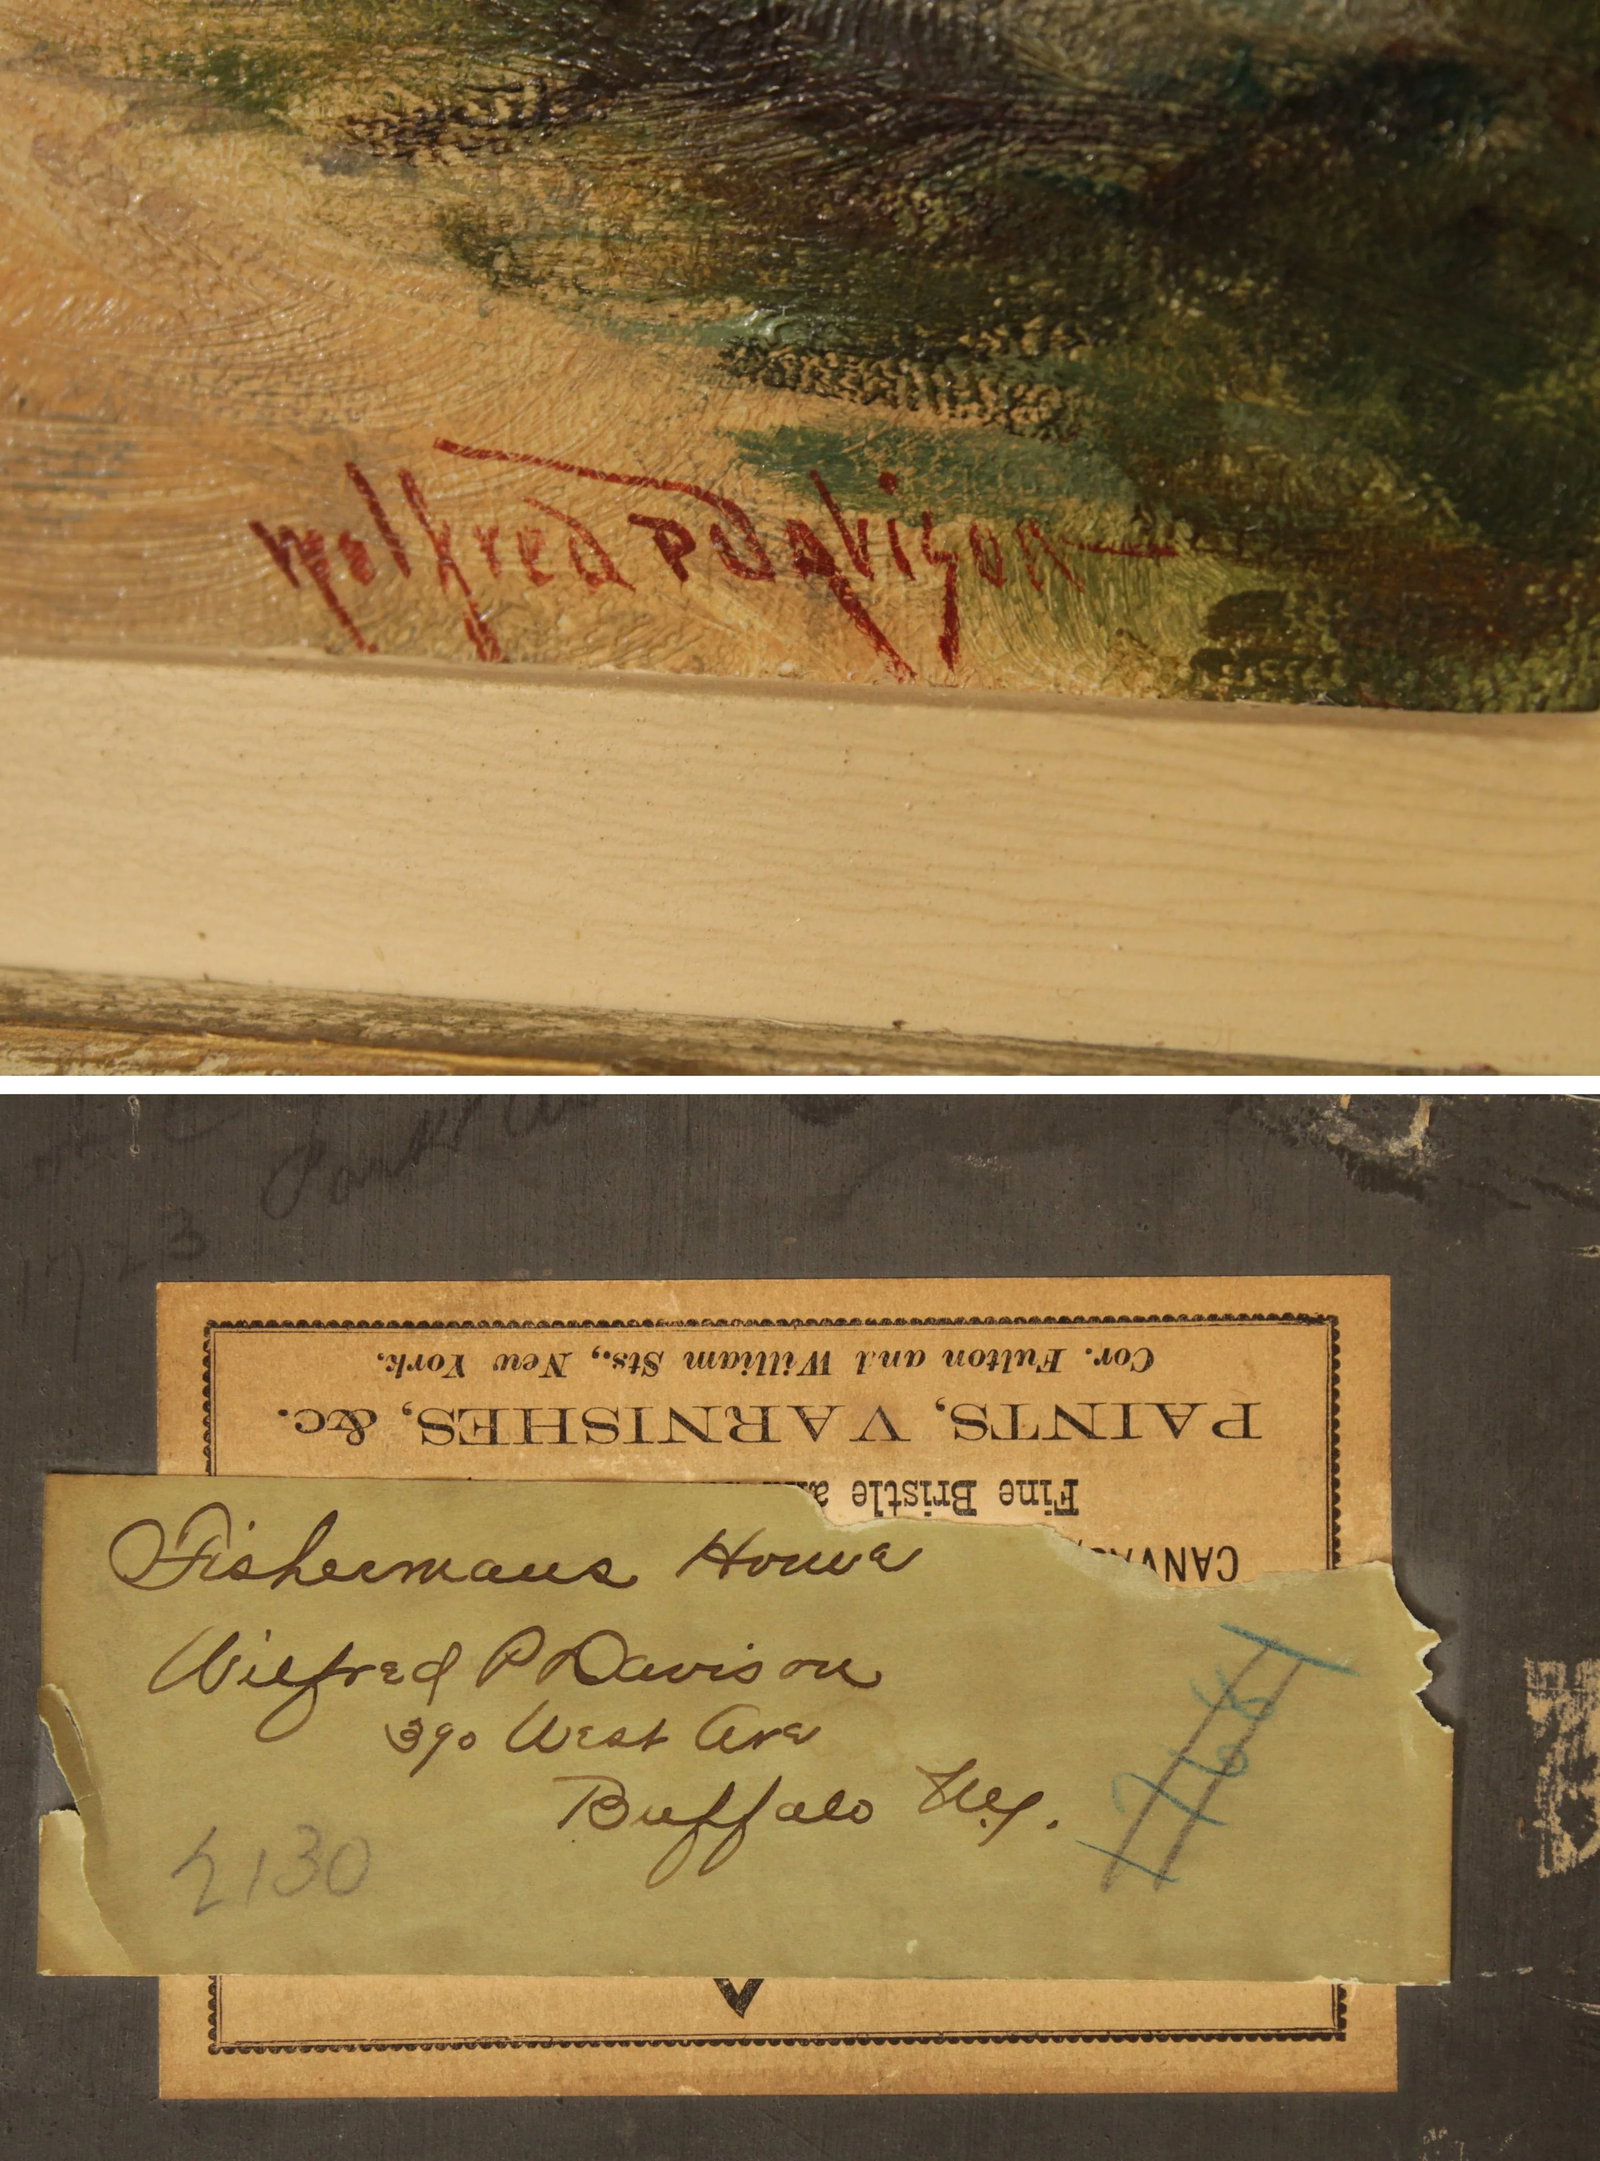 Wilfred P Davison
723
Cor. Fulton and William Sts., New York.
PAINTS, VARNISHES, &c.
Fine Bristle
CANVAS,
Fishermans Home
Wilfred P Davison
390 West Ave
Buffalo N.Y.
2130